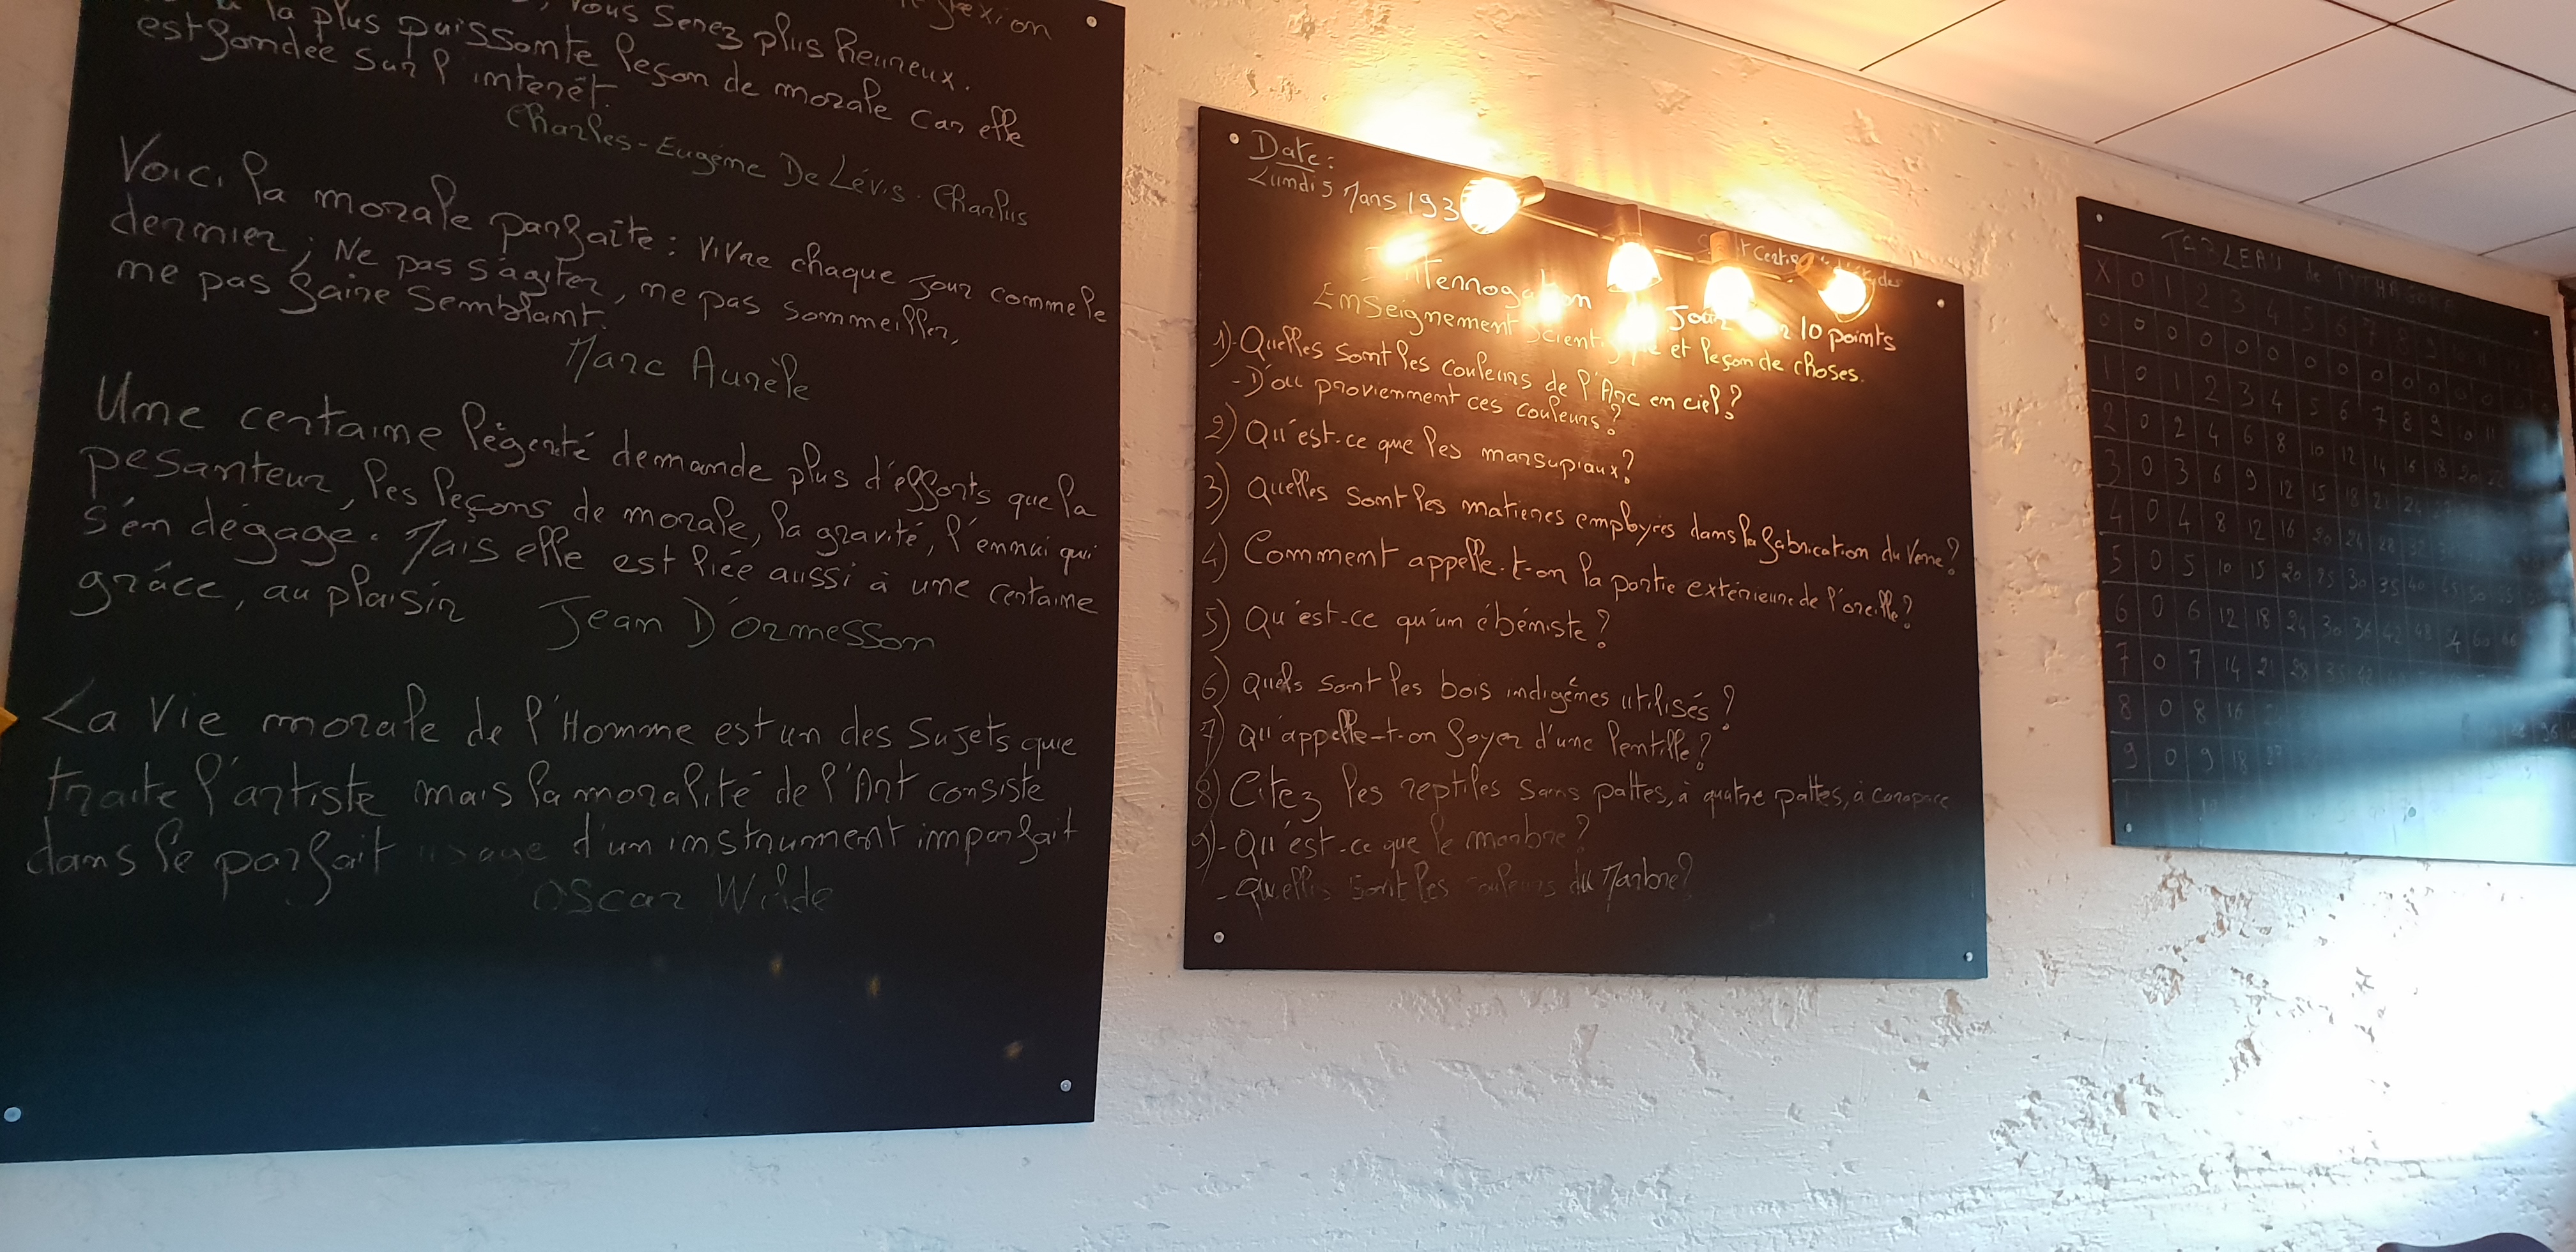 vous serez plus heureux.
la plus puissante leçon de morale car elle
est fondée sur l'interêt.
Charles-Eugéne De Lévis. Charlus
Voici la morale parfaîte : vivre chaque jour comme le
dernier ; Ne pas s'agiter, ne pas sommeiller,
ne pas faire semblant.
Marc Aurèle
Une certaine légerté demande plus d'efforts que la
pesanteur, les leçons de morale, la gravité, l'ennui qui
s'en dégage. Mais elle est liée aussi à une certaine
grâce, au plaisir
Jean D'Ormesson
La Vie morale de l'Homme est un des Sujets que
traite l'artiste mais la moralité de l'Art consiste
dans le parfait usage d'un instrument imparfait
Oscar Wilde
Date :
Lundi 5 Mars 193
10 points
Enseignement et leçon de choses.
1)-Quelles sont les couleurs de l'Arc en ciel ?
-D'ou proviennent ces couleurs ?
2) Qu'est-ce que les marsupiaux ?
3) Quelles sont les matieres employées dans la fabrication du Verre ?
4) Comment appelle-t-on la partie extérieure de l'oreille ?
5) Qu'est-ce qu'un ébéniste ?
6) Quels sont les bois indigénes utilisés ?
7) Qu'appelle-t-on foyer d'une lentille ?
8) Citez les reptiles sans pattes, à quatre pattes, à carapace
9)-Qu'est-ce que le marbre ?
-Quelles sont les couleurs du Marbre ?
TABLEAU de PYTHAGORE
X 0 1 2 3 4 5 6 7 8 9
0 0 0 0 0 0 0 0 0 0 0
1 0 1 2 3 4 5 6 7 8 9 10 11
2 0 2 4 6 8 10 12 14 16 18 20 22
3 0 3 6 9 12 15 18 21 24
4 0 4 8 12 16 20 24 28
5 0 5 10 15 20 25 30 35 40 45 50
6 0 6 12 18 24 30 36 42 48 54 60 66
7 0 7 14 21 28 35 42
8 0 8 16
9 0 9 18